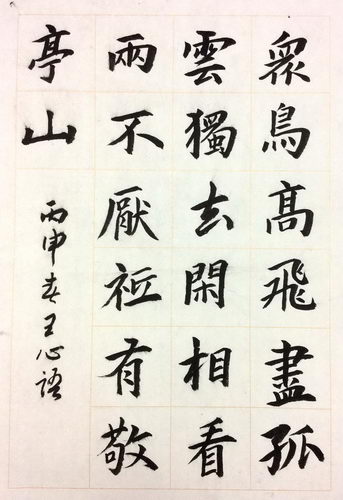 眾鳥高飛盡孤
雲獨去閑相看
兩不厭祗有敬
亭山
丙申春王心語